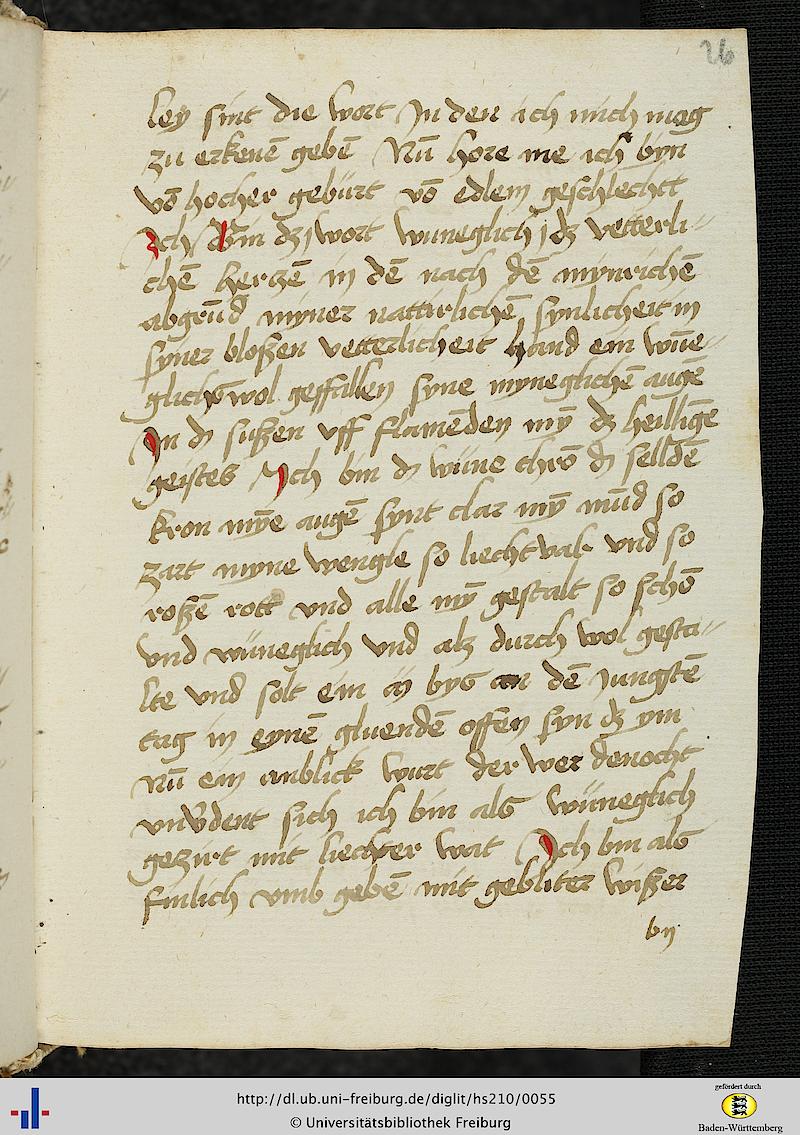 26
ley sint die wort In den ich mich mag
zu erkenē gebē Nū hore me ich byn
vō hocher gebürt vō edlem geschlechtt
Ich bin dʒ wort wuneglich dʒ vetterli-
chē hertzē in dē nach dē mynrichē
abgrūd myner natturlichē synlicheit in
syner bloßen vetterlicheit hand ein wūe-
glichs wol geffallen syne myneglichē augē
In d sußen uff flamēden mȳ dʒ heilligē
geistes Ich bin d wūne chrō d selldē
kron mȳe augē synt clar mȳ mūd so
zart myne wengle so liecht val vnd so
roßē rott vnd alle mȳ gestalt so schō
vnd wüneglich vnd alz durch wol gesta-
lte vnd solt ein bys an dē Jungstē
tag in eynē gluendē offen syn dʒ ym
nū ein anblick wurt der wer denocht
sich ich bin als wüneglich
gezirt mit liechter wat Ich bin als
finlich vmb gebē mit gebliter wißer
by
http://dl.ub.uni-freiburg.de/diglit/hs210/0055
© Universitätsbibliothek Freiburg
gefördert durch
Baden-Württemberg